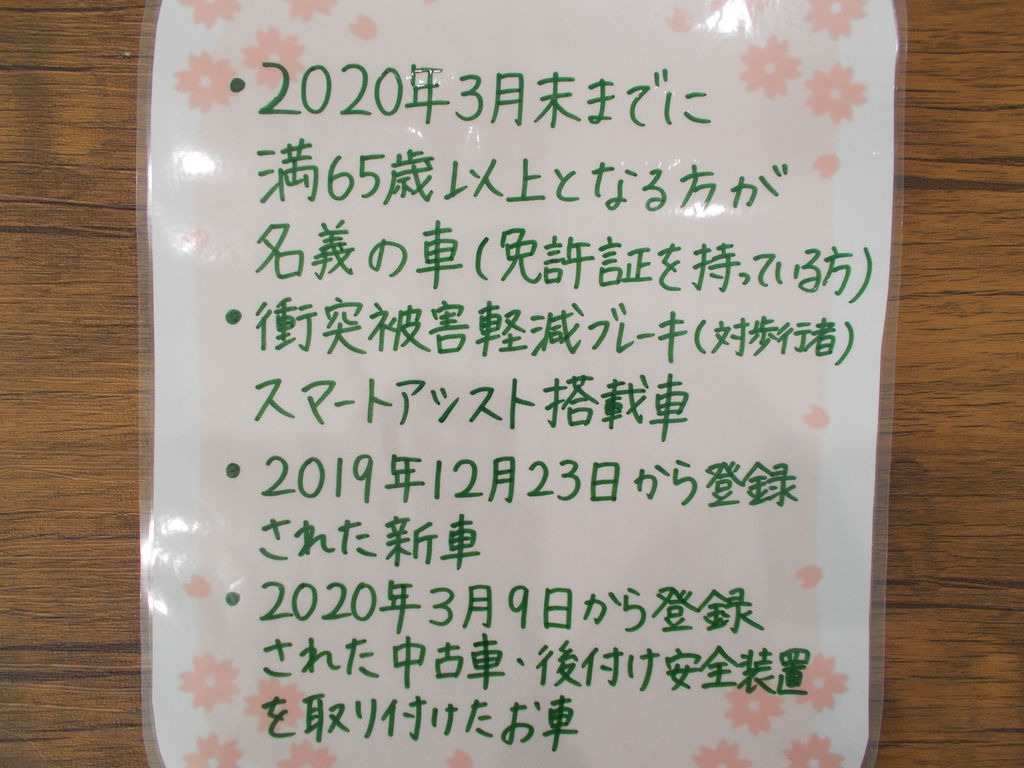 •2020年3月末までに
満65歳以上となる方が
名義の車(免許証を持っている方)
•衝突被害軽減ブレーキ(対歩行者)
スマートアシスト搭載車
•2019年12月23日から登録
された新車
•2020年3月9日から登録
された中古車・後付け安全装置
を取り付けたお車